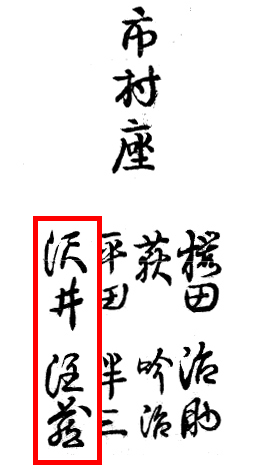 市村座
桜田 治助
荻 吟治
平田 半三
沢井 注蔵